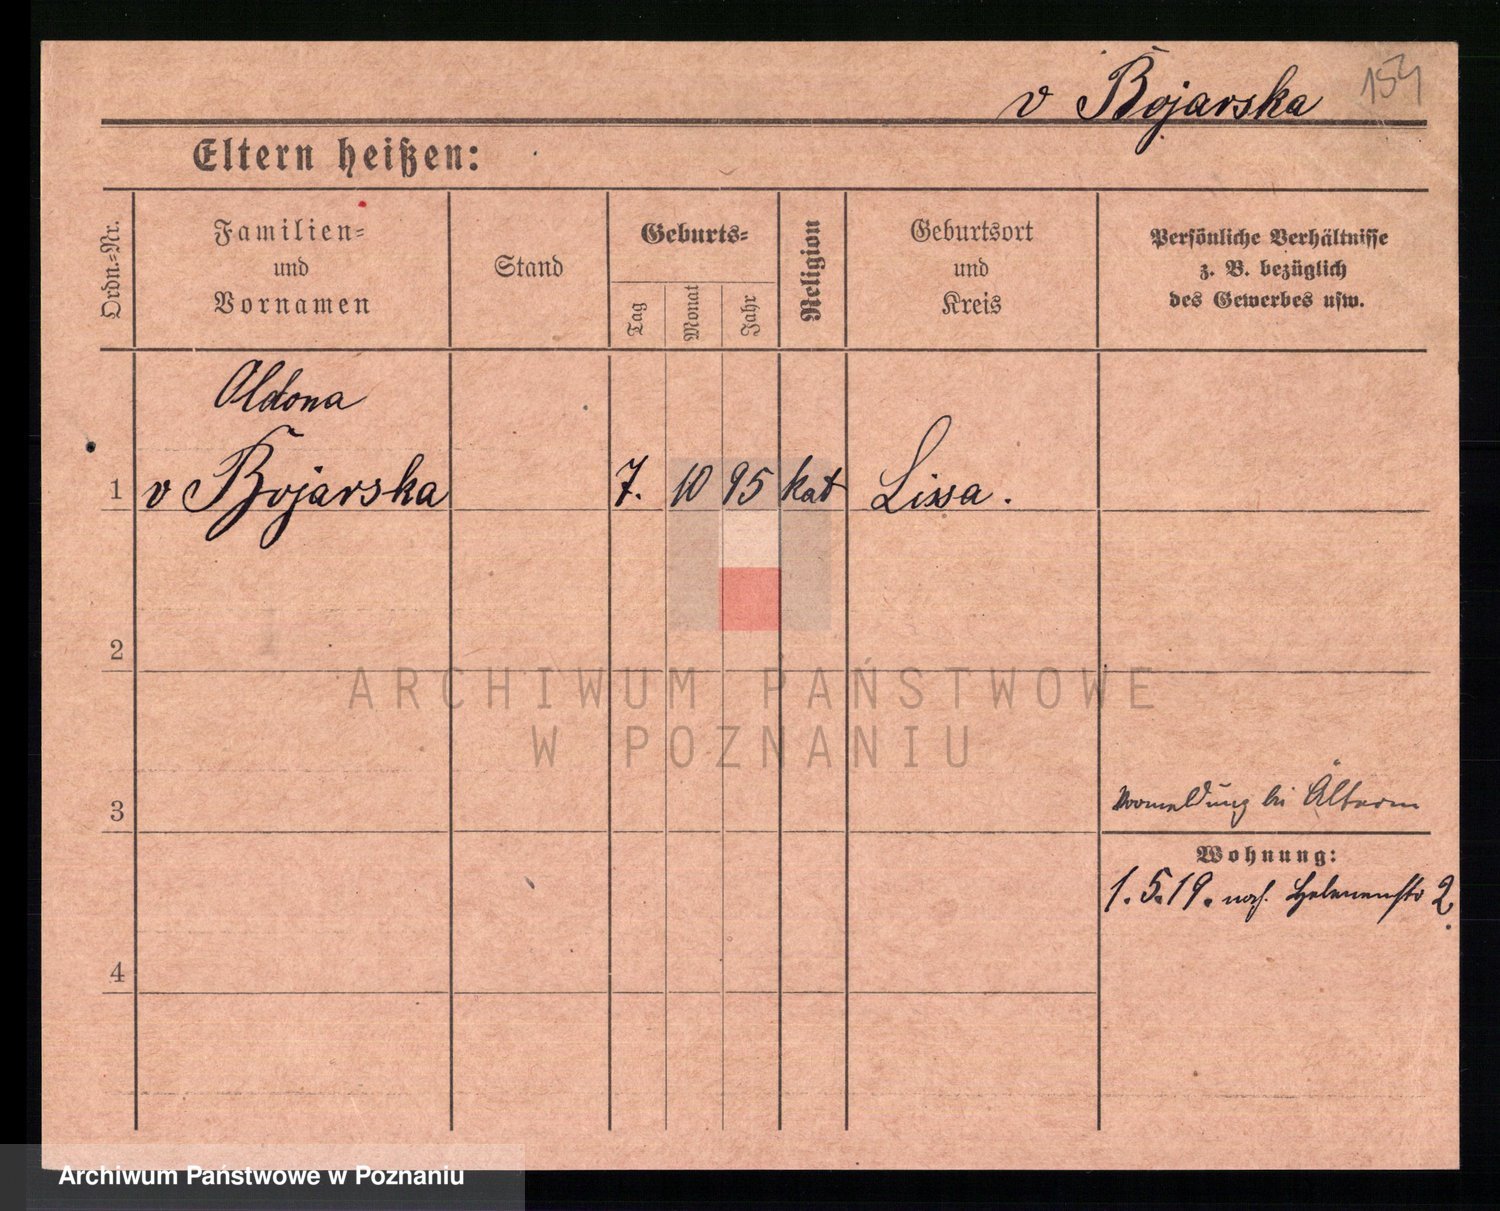 v Bojarska 154
Eltern heißen:
Ordn.-Nr.
Familien-
und
Vornamen
Stand
Geburts-
Tag
Monat
Jahr
Religion
Geburtsort
und
Kreis
Persönliche Verhältnisse
z. B. bezüglich
des Gewerbes usw.
Aldona
1 v Bojarska 7. 10 95 kat Lissa.
2
ARCHIWUM PAŃSTWOWE
W POZNANIU
3
Vormeldung bei Ältern
Wohnung:
1.5.19. nach Helenenstr 2.
4
Archiwum Państwowe w Poznaniu